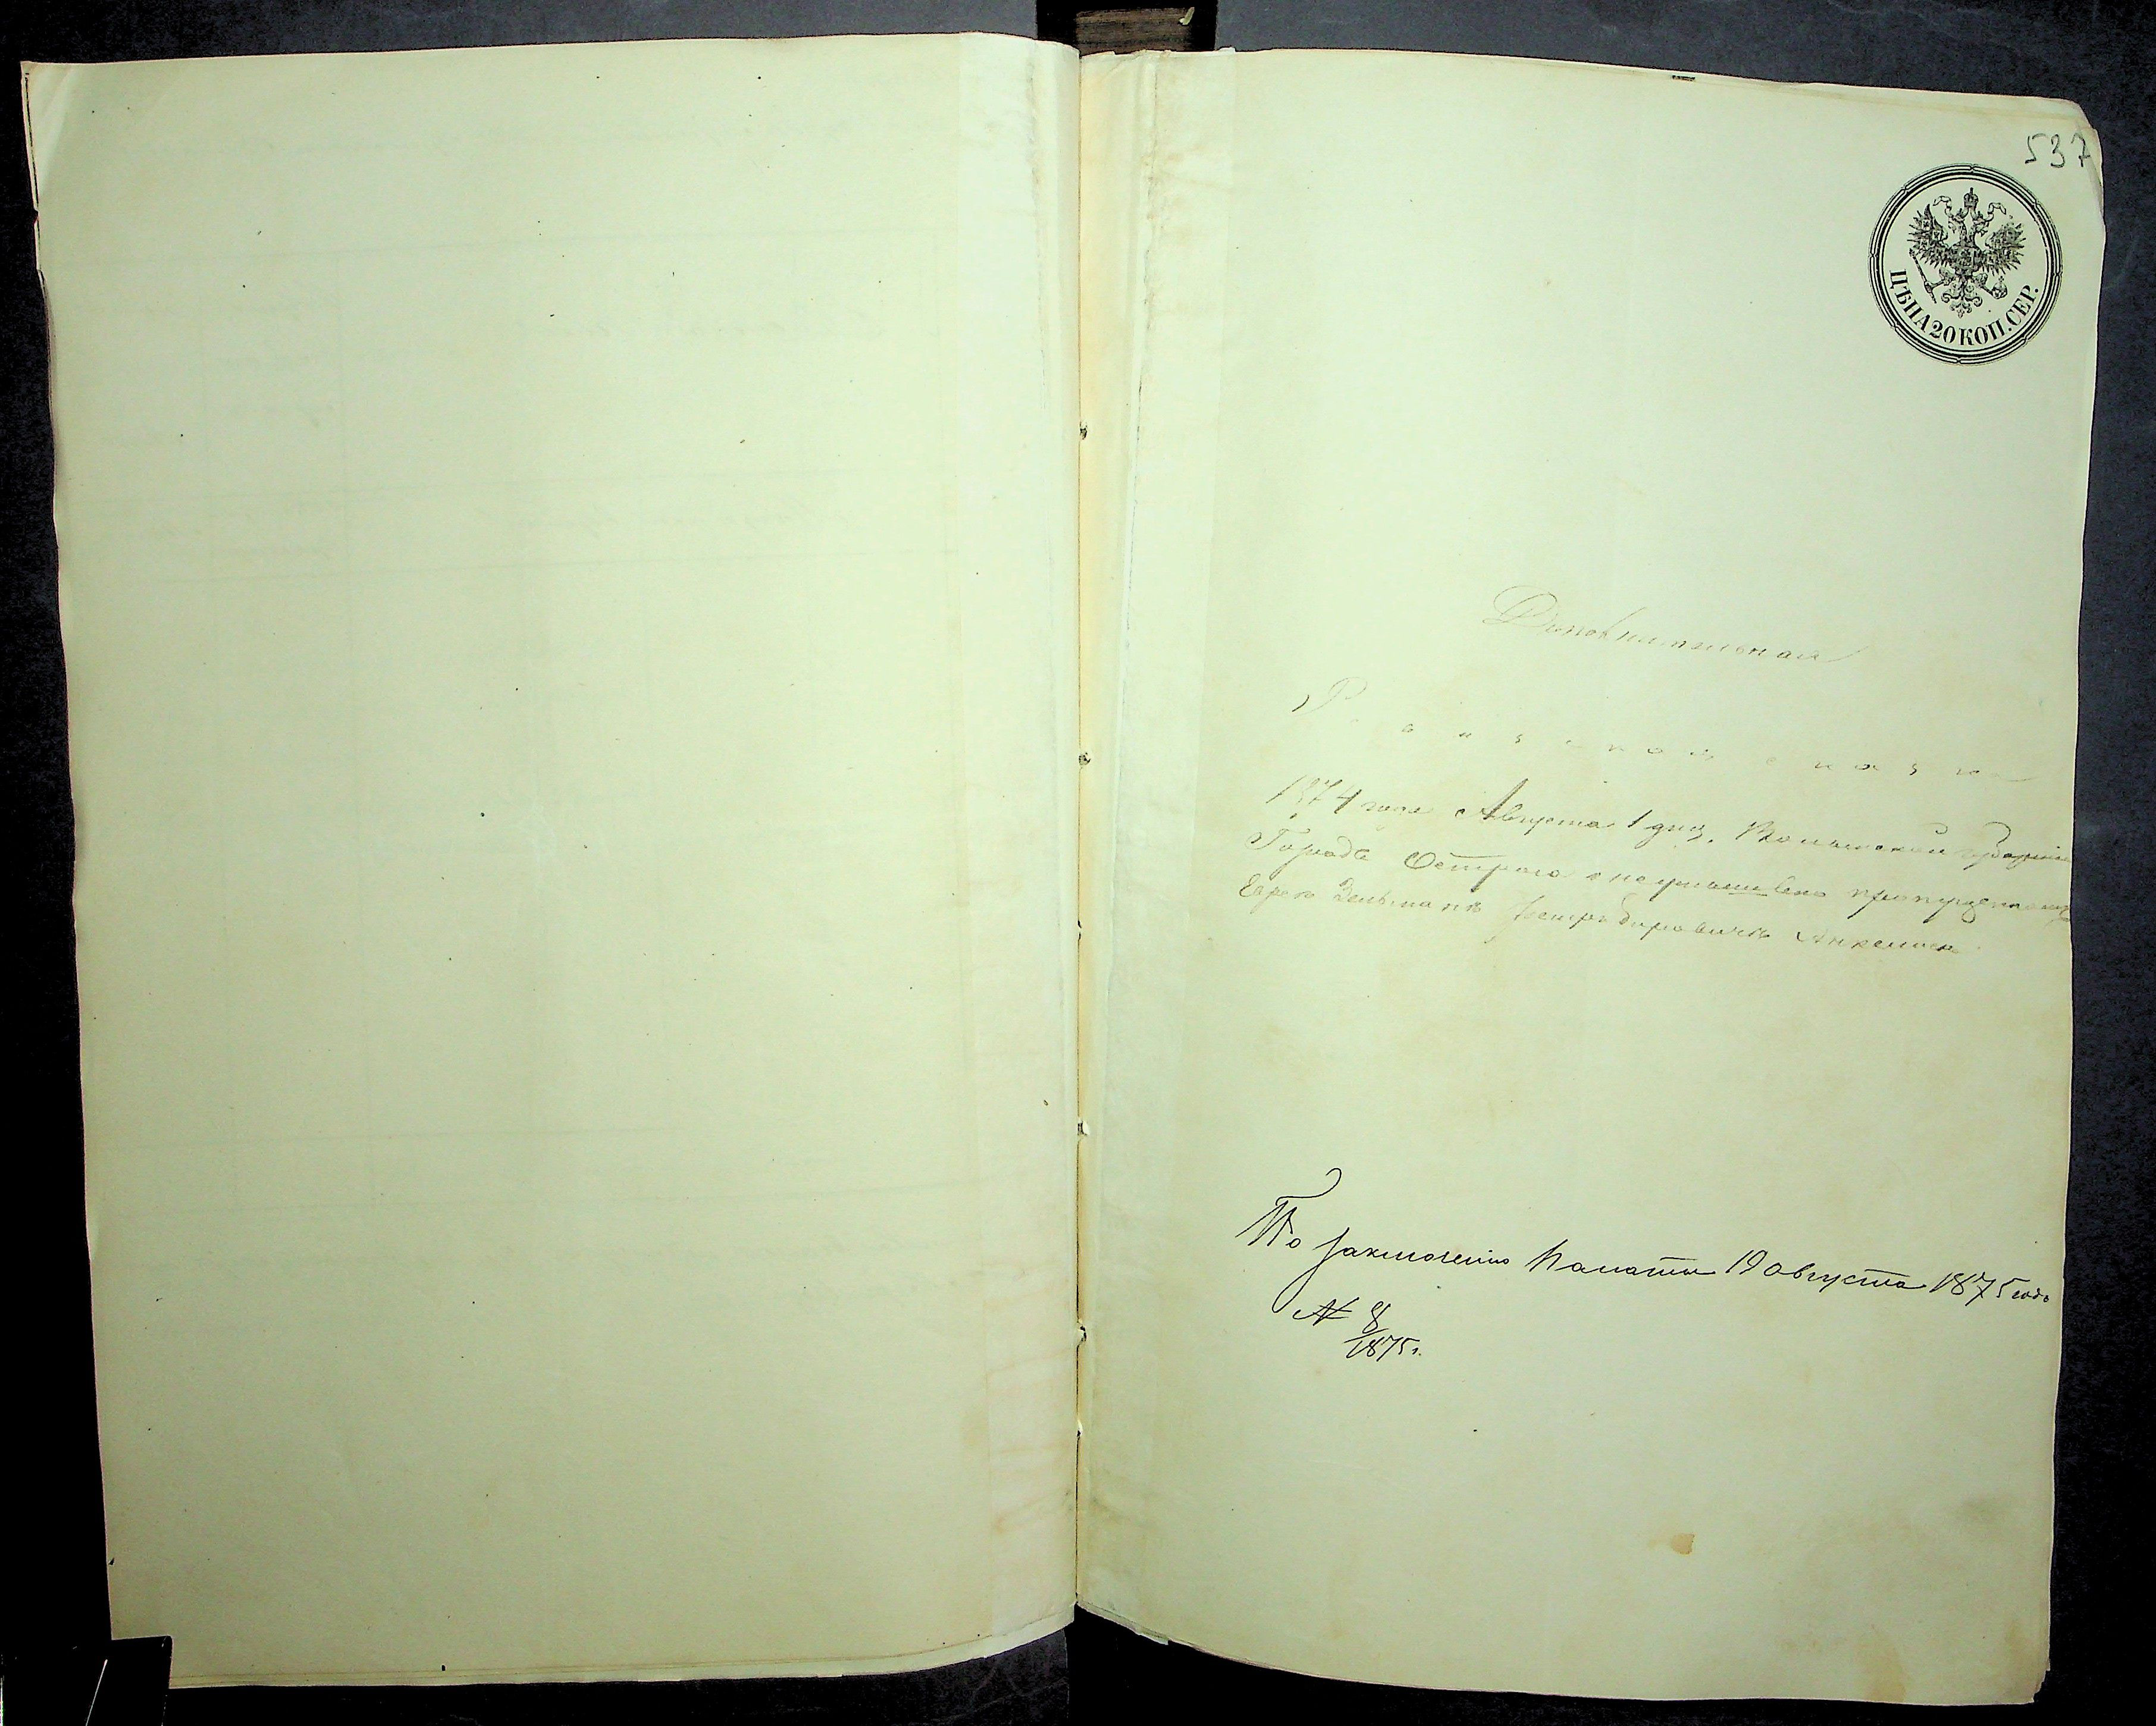 537
ЦѢНА 20 КОП. СЕР.
Дополнительная
Ревизская сказка
1874 года Августа 1 дня. Волынской губернии
Города Острога о неумышленно пропущенном
Еврее Зельмане
По заключению Палаты 19 августа 1875 года
№ 8/1875 г.